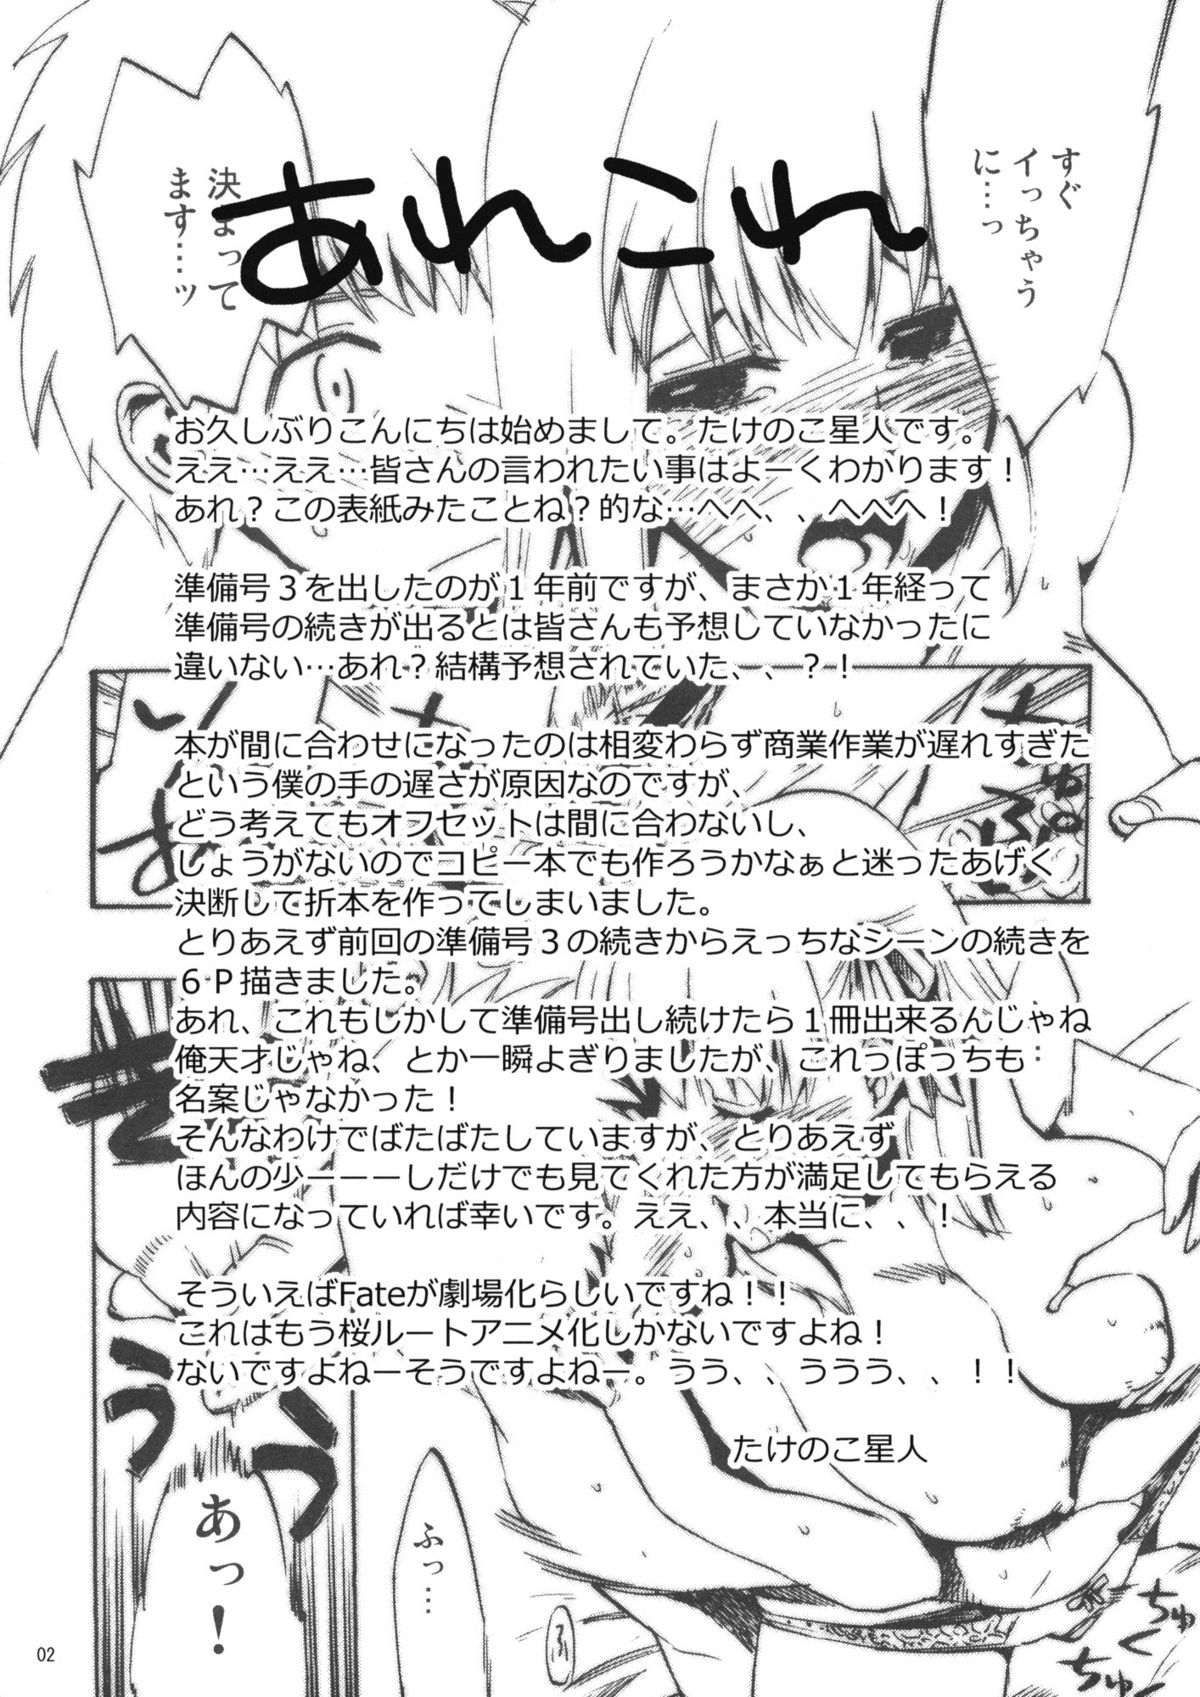 あれこれ
すぐ
イっちゃう
に…っ
決まって
ます…ッ
お久しぶりこんにちは始めまして。たけのこ星人です。
ええ…ええ…皆さんの言われたい事はよーくわかります！
あれ？この表紙みたことね？的な…へへ、、へへへ！
準備号３を出したのが１年前ですが、まさか１年経って
準備号の続きが出るとは皆さんも予想していなかったに
違いない…あれ？結構予想されていた、、？！
本が間に合わせになったのは相変わらず商業作業が遅れすぎた
という僕の手の遅さが原因なのですが、
どう考えてもオフセットは間に合わないし、
しょうがないのでコピー本でも作ろうかなぁと迷ったあげく
決断して折本を作ってしまいました。
とりあえず前回の準備号３の続きからえっちなシーンの続きを
６Ｐ描きました。
あれ、これもしかして準備号出し続けたら１冊出来るんじゃね
俺天才じゃね、とか一瞬よぎりましたが、これっぽっちも
名案じゃなかった！
そんなわけでばたばたしていますが、とりあえず
ほんの少ーーーしだけでも見てくれた方が満足してもらえる
内容になっていれば幸いです。ええ、、本当に、、！
そういえばFateが劇場化らしいですね！！
これはもう桜ルートアニメ化しかないですよね！
ないですよねーそうですよねー。うう、、ううう、、！！
たけのこ星人
あっ！
ふっ…
ちゅく
ちゅく
02